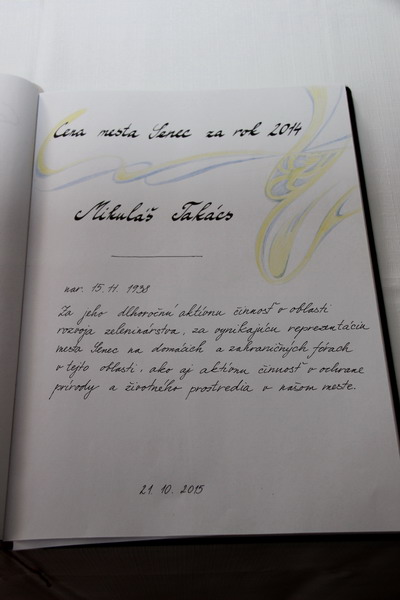 Cena mesta Senec za rok 2014
Mikuláš Takács
nar. 15. 11. 1938
Za jeho dlhoročnú aktívnu činnosť v oblasti
rozvoja zeleninárstva, za vynikajúcu reprezentáciu
mesta Senec na domácich a zahraničných fórach
v tejto oblasti, ako aj aktívnu činnosť v ochrane
prírody a životného prostredia v našom meste.
21. 10. 2015